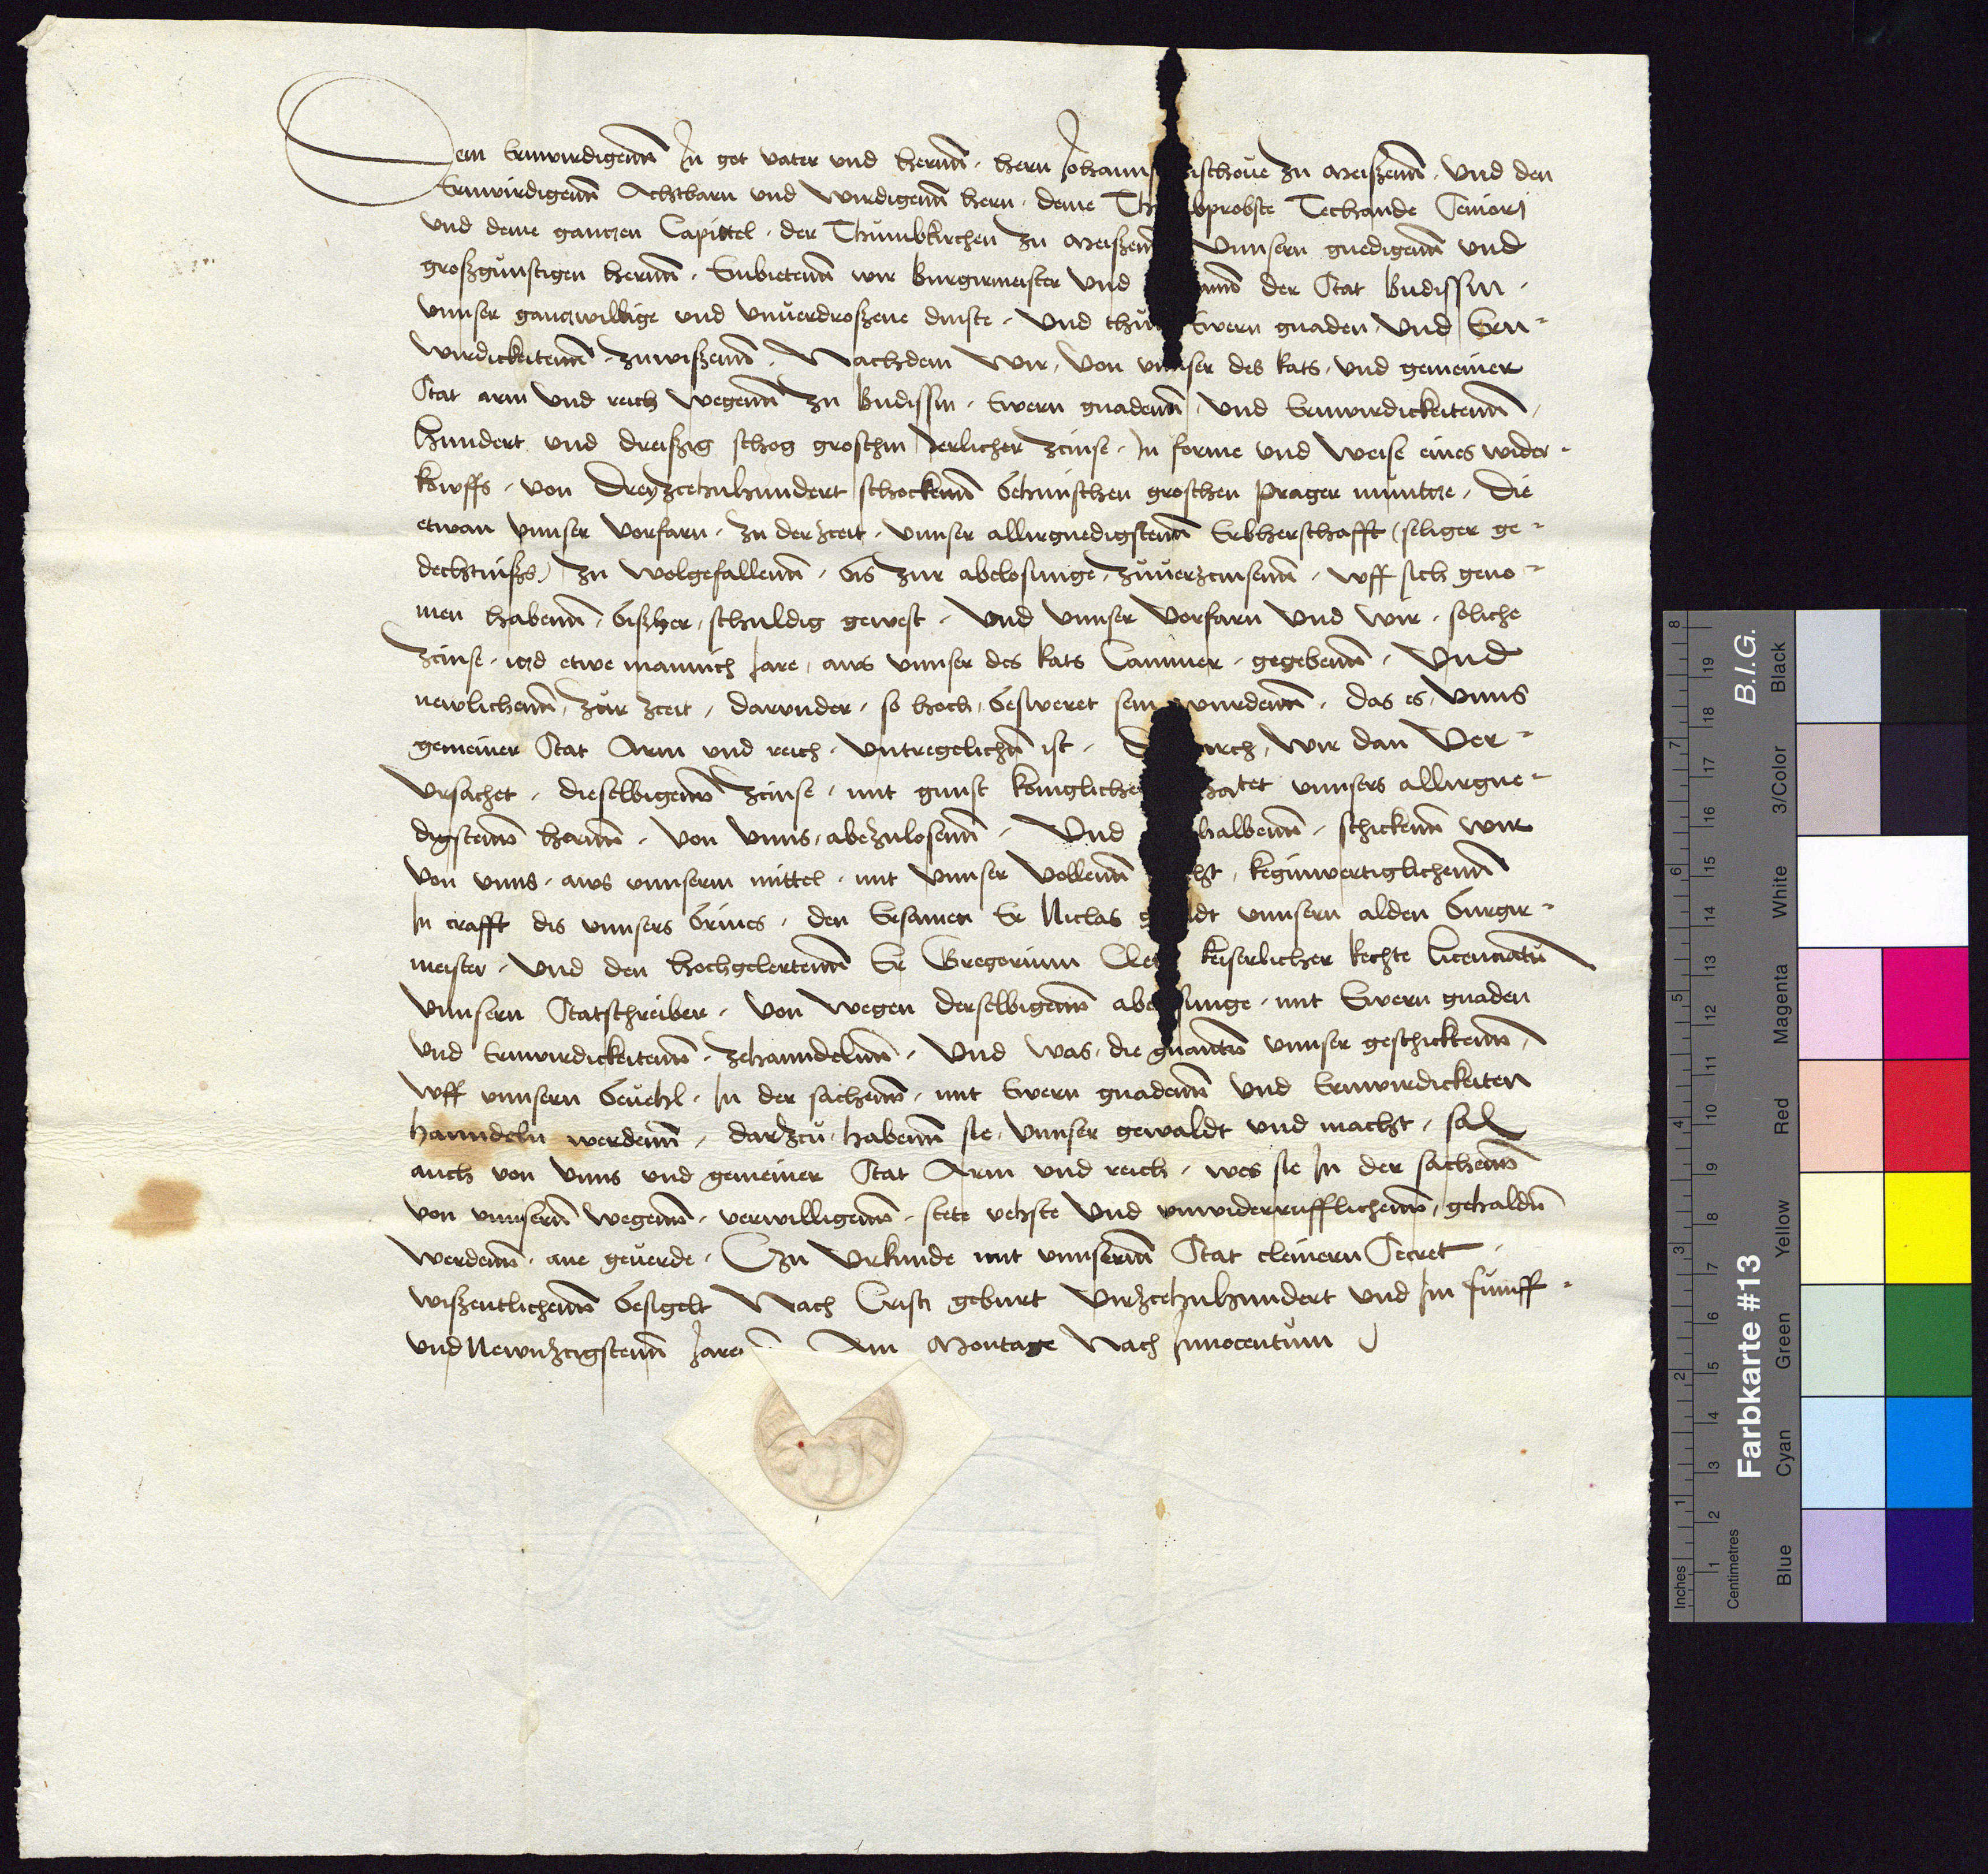 Dem Erwirdigenn In got vater und hernnn, hern Johanns ischoue zu Meiszenn, Und den
Erwirdigenn Achtbarn und Wirdigenn hern, deme Th bprobste Techande Seniori
und deme ganczen Capittel, der Thumbkirchen zu Meiszenn Unnsern gnedigenn und
groszgunstigen hernnn, Enbietenn wir Burgirmeister Und der Stat Budissin,
unnser ganczwillige und unuerdroszene dinste, Und thun Ewern gnaden, Und Erw-
wirdickeitenn, zuwiszenn, Nachdem Wir, Von unnser des Rats, und gemeiner
Stat arm und reich Wegenn zu Budissin, Ewern gnadenn, und Erwirdickeitenn,
hundert und dreiszig schog groschin Jerlicher zcinse, In forme und Weise eines wider-
kowffs, von dreyzcehnhundert schockenn behmischen groschen Prager muntcze, die
etwan unnser Vorfarn, zu der zceit, unnser allirgnedigstenn Erbherschafft (seliger ge-
dechtnisz) zu wolgefallenn, bis zur abelosunge, zuuerzcinsenn, uff sich geno-
men habenn, biszher, schuldig gewest, Und unnser Vorfarn Und wir, soliche
zcinse, iczd etwe mannich Jare, aws unnser des Rats Cammer, gegebenn, Und
newlichenn, zur zceit, darunder, so hoch, besweret sein wurdenn, das es, Unns
gemeiner Stat Arm und reich, untregelichn ist, D urch, wir dan Ver-
ursachet, dieselbigenn zcinse, mit gunst koniglicher atet unnsers allirgne-
digstenn hernnn, Von Unns, abezulosenn, Und halbenn, schickenn wir
Von unns, aws unnserm mittel, mit Unnser Vollenn cht, keginwertiglichenn
In crafft dis unnsers briues, den Ersamen Er Niclas g ldt unnsern alden burgir-
meister, Und den hochgelertenn Er Gregorium keiserlicher Rechte licenciatu
Unnsern Statschreiber, Von wegen derselbigenn abe sunge, mit Ewern gnaden
und Erwirdickeitenn, zehanndelnn, Und was, die gnantn unnser geschicktenn,
Uff unnsern beuehl, In der sachenn, mit Ewern gnadenn Und Erwirdickeiten
hanndeln werdenn, darzcu, habenn sie, Unnser gewaldt und macht, sal
auch von Unns und gemeiner Stat Arm und reich, wes sie In der sachenn
von unnsern wegenn, verwilligenn, stete vehste Und unwiderrufflichenn, gehaldn
werdenn, ane geuerde, Czu Urkunde mit unnsernn Stat cleinern Secret,
wiszentlichenn besigelt Nach Cristi geburt Virzcehnhundert und Im funff-
und Newnzcigstenn Jare Am Montage Nach Innocentum
Farbkarte #13
B.I.G.
Inches
Centimetres
Blue
Cyan
Green
Yellow
Red
Magenta
White
3/Color
Black